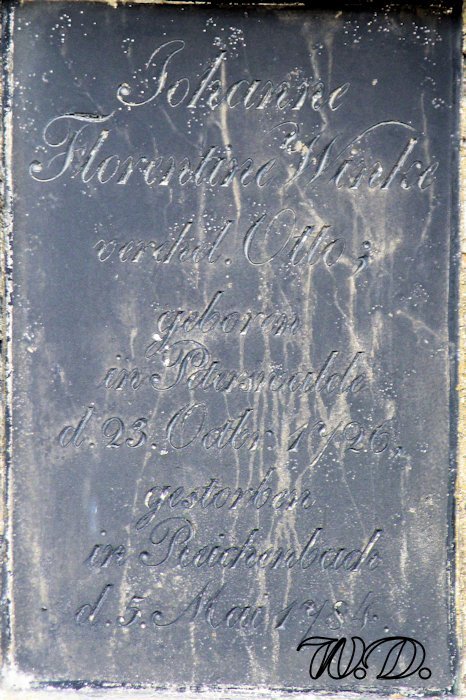 Johanne
Florentine Winke
verehel. Otto;
geboren
in Peterswalde
d. 23. Octbr. 1726,
gestorben
in Reichenbach
d. 5. Mai 1784.
W.D.